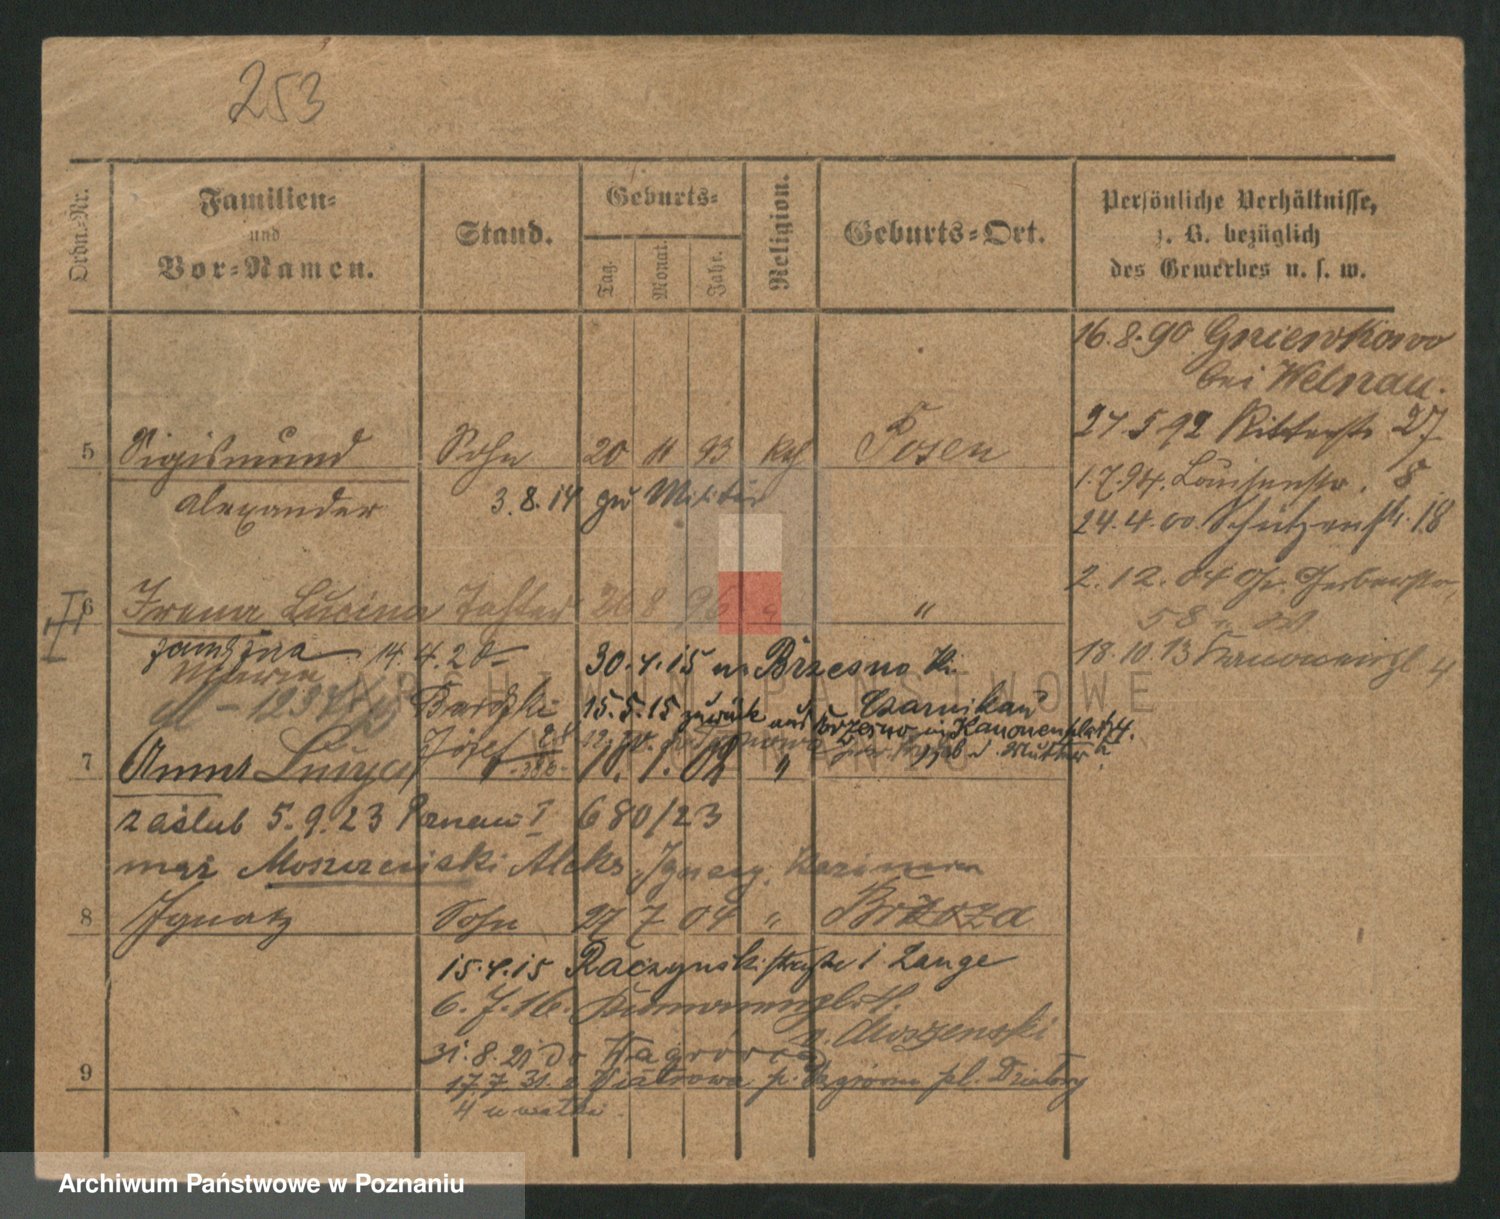 253
Ordn.-Nr.
Familien-
und
Vor-Namen.
Stand.
Geburts-
Tag.
Monat.
Jahr.
Religion.
Geburts-Ort.
Persönliche Verhältnisse,
z. B. bezüglich
des Gewerbes u. s. w.
16.8.90 Gniewkowo
bei Welnau.
27.5.92 Ritterstr 27
5 Sigismund Sohn 20 11 93 kth Posen
1.7.94. Louisenstr. 8
Alexander 3.8.14 zu Militär
24.4.00. Schützenstr. 18
2.12.04 Gr. Gerberstr.
58
6 Irena Lucina Tochter 26 8 96 "
zamężna 14.4.20
Maria
30.4.15 n. Brzesno Kr.
Czarnikau
18.10.13 Kanonenpl. 4
15.5.15 zurück aus Brzesno in Kanonenplatz 4.
Józef
7 Anna Lucya 10. 1. 02 "
b. d. Mutter
zaślub 5.9.23 Poznań I 680/23
mąż Aleks. Ignacy, Kazimierz
8 Ignatz Sohn 27 7 04 " Brzoza
15.4.15 Raczynskistraße 1 Lange
6.7.16. Kanonenpl. 4.
31.8.21 do Wągrówca
9
17.7.31. z p. pl. Działowy
4 u matki.
Archiwum Państwowe
w Poznaniu
Archiwum Państwowe w Poznaniu